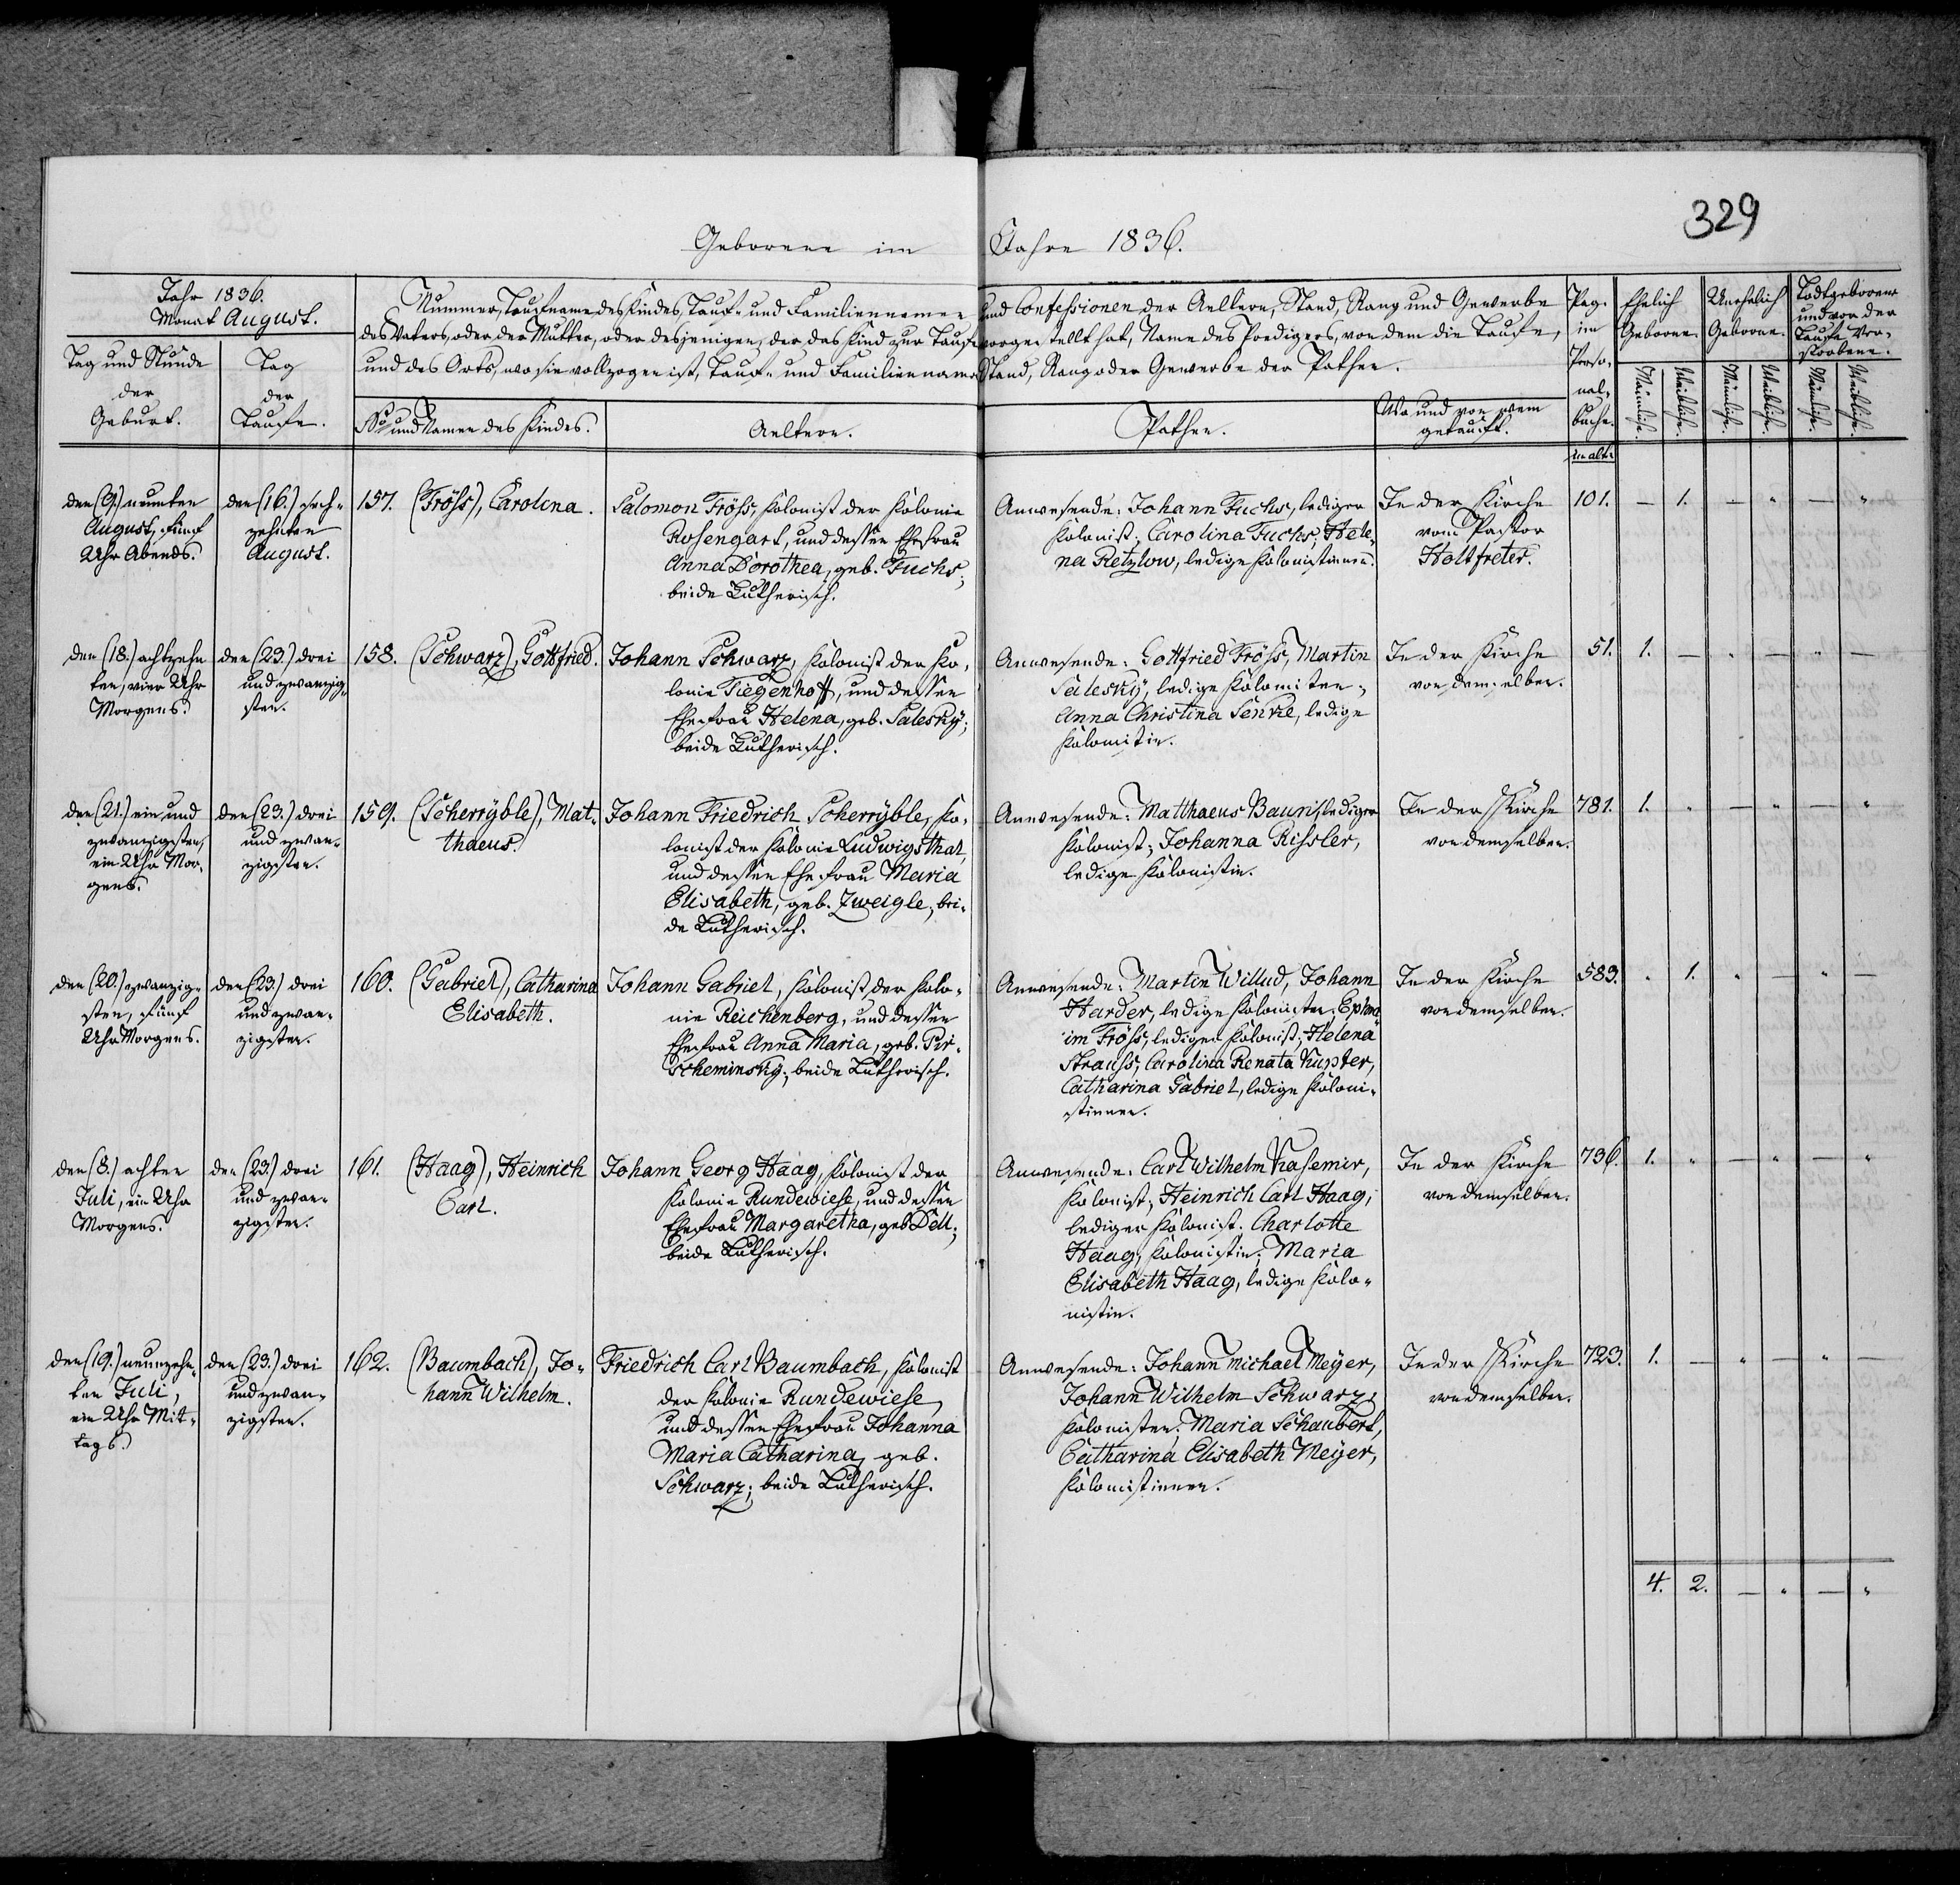 329
Geborene im Jahre 1836.
Jahr 1836.
Monat August.
Tag und Stunde
der
Geburt.
Tag
der
Taufe.
Nummer, Taufname des Kindes, Tauf- und Familiennamen und Confessionen der Aeltern, Stand, Rang und Gewerbe
des Vaters, oder der Mutter, oder desjenigen, der das Kind zur Taufe vorgestellt hat, Name des Predigers, von dem die Taufe,
und des Orts, wo sie vollzogen ist, Tauf- und Familienname, Stand, Rang oder Gewerbe der Pathen.
No und Namen des Kindes.
Aeltern.
Pathen.
Wo und von wem
getauft.
Pag.
im
Perso-
nal-
buche.
im alten
Ehelich
Geborne.
Unehelich
Geborne.
Todtgeborene
und vor der
Taufe Ver-
storbene.
Männliche.
Weibliche.
Männliche.
Weibliche.
Männliche.
Weibliche.
den (9.) neunten
August, fünf
Uhr Abends.
den (16.) sech-
zehnten
August.
157. (Fröss), Carolina.
Salomon Fröss, Kolonist der Kolonie
Rosengart, und dessen Ehefrau
Anna Dorothea, geb. Fuchs;
beide Lutherisch.
Anwesende: Johann Fuchs, lediger
Kolonist; Carolina Fuchs, Hele-
na Retzlow, ledige Kolonistinnen.
In der Kirche
vom Pastor
Holtfreter.
101. — 1. - " — "
den (18.) achtzehn
ten, vier Uhr
Morgens.
den (23.) drei
und zwanzig-
sten.
158. (Schwarz), Gottfried.
Johann Schwarz, Kolonist der Ko-
lonie Tiegenhoff, und dessen
Ehefrau Helena, geb. Salesky;
beide Lutherisch.
Anwesende: Gottfried Fröss, Martin
Salesky, ledige Kolonisten;
Anna Christina Senke, ledige
Kolonistin.
In der Kirche
von demselben.
51. 1. — " — " —
den (21.) ein und
zwanzigsten,
ein Uhr Mor-
gens.
den (23.) drei
und zwan-
zigsten.
159. (Scherryble), Mat-
thaeus.
Johann Friedrich Scherryble, Ko-
lonist der Kolonie Ludwigsthal,
und dessen Ehefrau Maria
Elisabeth, geb. Zweigle; bei-
de Lutherisch.
Anwesende: Matthaeus Baun, lediger
Kolonist; Johanna Rissler,
ledige Kolonistin.
In der Kirche
von demselben.
781. 1. " — " — "
den (20.) zwanzig-
sten, fünf
Uhr Morgens.
den (23.) drei
und zwan-
zigsten.
160. (Gabriel), Catharina
Elisabeth.
Johann Gabriel, Kolonist der Kolo-
nie Reichenberg, und dessen
Ehefrau Anna Maria, geb. Pir-
scheminsky; beide Lutherisch.
Anwesende: Martin Willud, Johann
Harder, ledige Kolonisten; Ephra-
im Fröss, lediger Kolonist; Helena
Strauss, Carolina Renata Kupfer,
Catharina Gabriel, ledige Koloni-
stinnen.
In der Kirche
von demselben.
583. " 1. " — " —
den (8.) achten
Juli, ein Uhr
Morgens.
den (23.) drei
und zwan-
zigsten.
161. (Haag), Heinrich
Carl.
Johann Georg Haag, Kolonist der
Kolonie Rundewiese, und dessen
Ehefrau Margaretha, geb. Dell;
beide Lutherisch.
Anwesende: Carl Wilhelm Kasemir,
Kolonist; Heinrich Carl Haag,
lediger Kolonist. Charlotte
Haag, Kolonistin; Maria
Elisabeth Haag, ledige Kolo-
nistin.
In der Kirche
von demselben.
736. 1. " — " — "
den (19.) neunzehn-
ten Juli,
ein Uhr Mit-
tags.
den (23.) drei
und zwan-
zigsten.
162. (Baumbach), Jo-
hann Wilhelm.
Friedrich Carl Baumbach, Kolonist
der Kolonie Rundewiese,
und dessen Ehefrau Johanna
Maria Catharina, geb.
Schwarz; beide Lutherisch.
Anwesende: Johann Michael Meyer,
Johann Wilhelm Schwarz,
Kolonisten; Maria Schaubert,
Catharina Elisabeth Meyer,
Kolonistinnen.
In der Kirche
von demselben.
723. 1. — " — " —
4. 2. — " — "